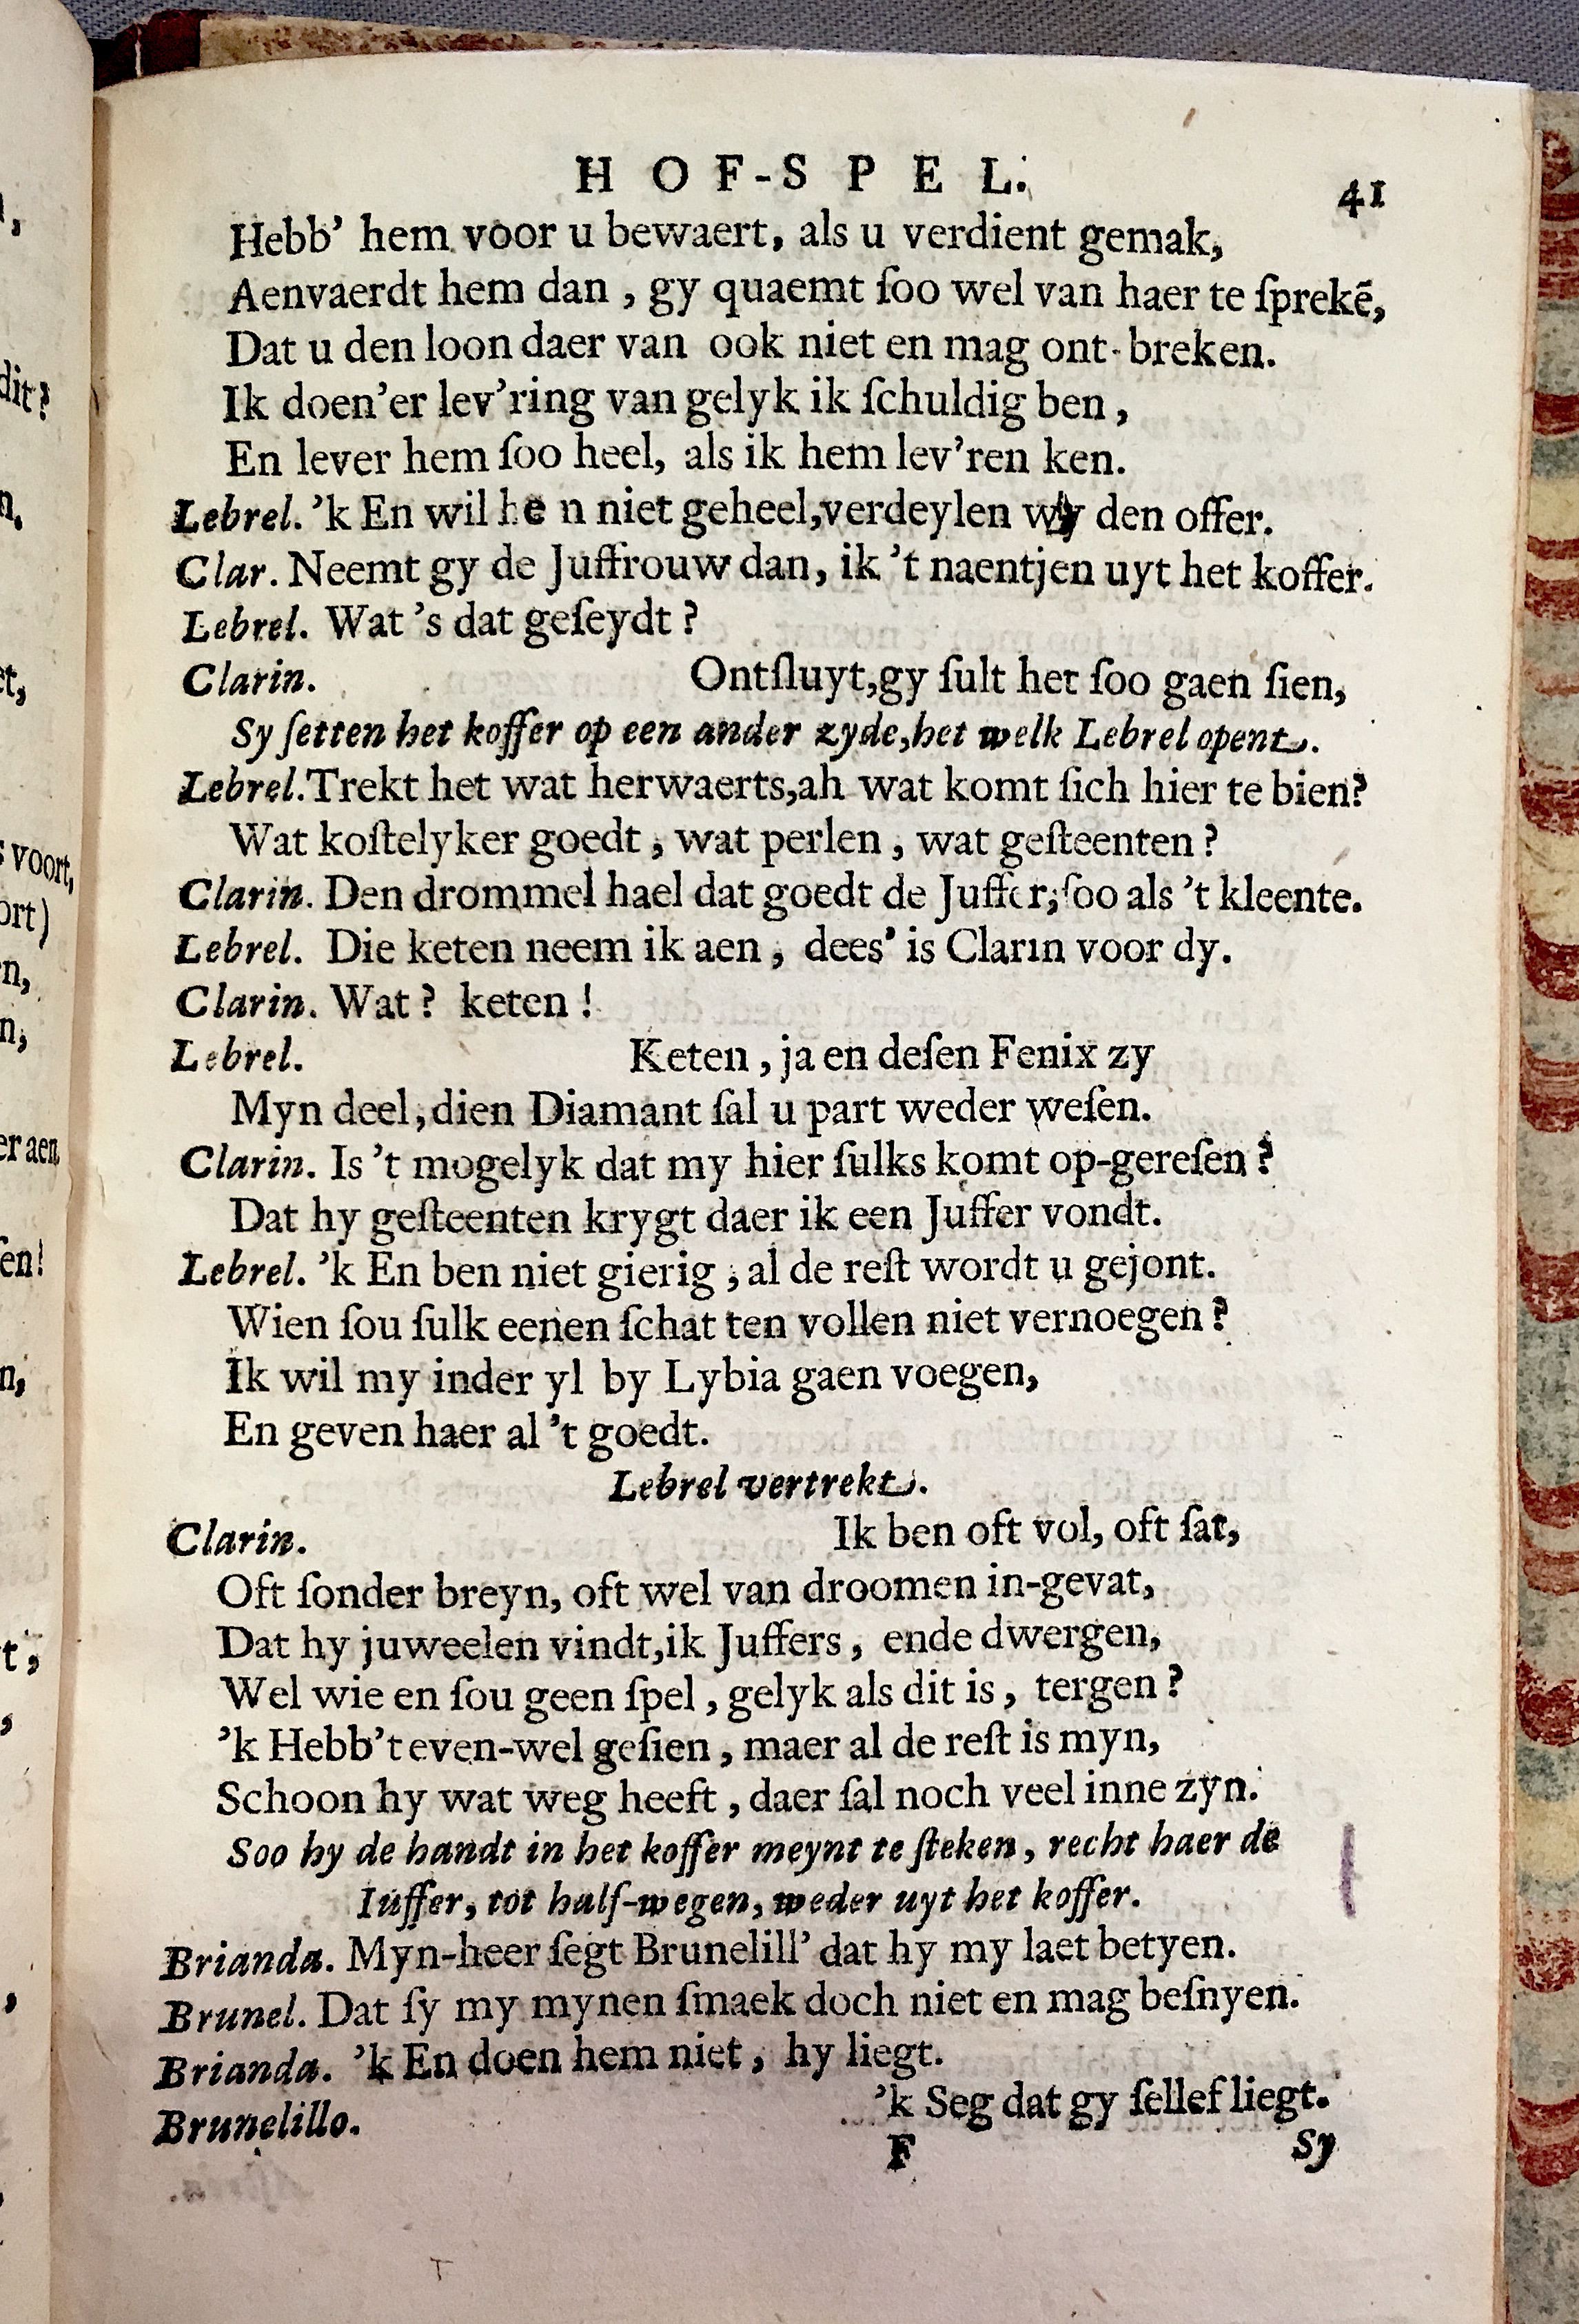 HOF-SPEL. 41
Hebb' hem voor u bewaert, als u verdient gemak,
Aenvaerdt hem dan, gy quaemt ſoo wel van haer te ſprekē,
Dat u den loon daer van ook niet en mag ont-breken.
Ik doen'er lev'ring van gelyk ik ſchuldig ben,
En lever hem ſoo heel, als ik hem lev'ren ken.
Lebrel. 'k En wil he n niet geheel, verdeylen wy den offer.
Clar. Neemt gy de Juffrouw dan, ik 't naentjen uyt het koffer.
Lebrel. Wat 's dat geſeydt?
Clarin. Ontſluyt, gy ſult het ſoo gaen ſien,
Sy ſetten het koffer op een ander zyde, het welk Lebrel opent.
Lebrel. Trekt het wat herwaerts, ah wat komt ſich hier te bien?
Wat koſtelyker goedt, wat perlen, wat geſteenten?
Clarin. Den drommel hael dat goedt de Juffer, ſoo als 't kleente.
Lebrel. Die keten neem ik aen, dees' is Clarin voor dy.
Clarin. Wat? keten!
Lebrel. Keten, ja en deſen Fenix zy
Myn deel, dien Diamant ſal u part weder weſen.
Clarin. Is 't mogelyk dat my hier ſulks komt op-gereſen?
Dat hy geſteenten krygt daer ik een Juffer vondt.
Lebrel. 'k En ben niet gierig, al de reſt wordt u gejont.
Wien ſou ſulk eenen ſchat ten vollen niet vernoegen?
Ik wil my inder yl by Lybia gaen voegen,
En geven haer al 't goedt.
Lebrel vertrekt.
Clarin. Ik ben oft vol, oft ſat,
Oft ſonder breyn, oft wel van droomen in-gevat,
Dat hy juweelen vindt, ik Juffers, ende dwergen,
Wel wie en ſou geen ſpel, gelyk als dit is, tergen?
'k Hebb't even-wel geſien, maer al de reſt is myn,
Schoon hy wat weg heeft, daer ſal noch veel inne zyn.
Soo hy de handt in het koffer meynt te ſteken, recht haer de
Iuffer, tot half-wegen, weder uyt het koffer.
Brianda. Myn-heer ſegt Brunelill' dat hy my laet betyen.
Brunel. Dat ſy my mynen ſmaek doch niet en mag beſnyen.
Brianda. 'k En doen hem niet, hy liegt.
Brunelillo. 'k Seg dat gy ſellef liegt.
F Sy